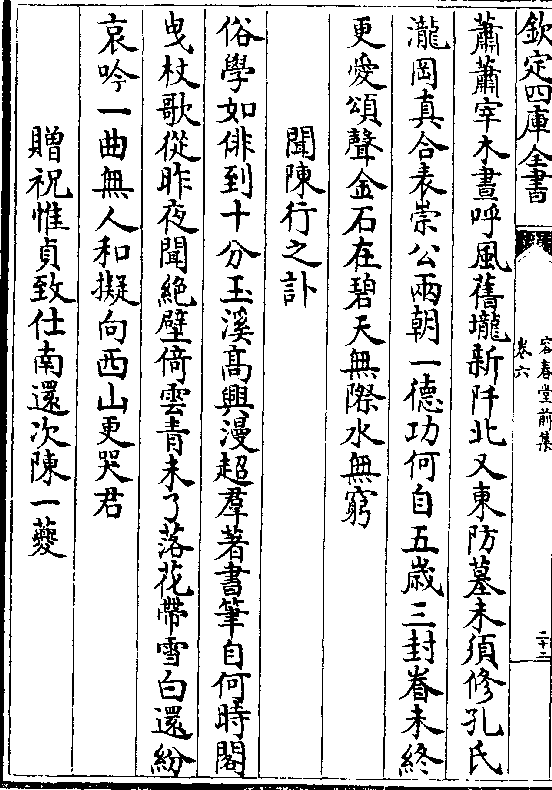 欽定四庫全書
容春堂前集
卷六
二十二
蕭蕭宰木晝呼風舊壠新阡北又東防墓未須修孔氏
瀧岡真合表崇公兩朝一德功何自五歳三封眷未終
更愛頌聲金石在碧天無際水無窮
聞陳行之訃
俗學如俳到十分玉溪髙興漫超羣著書筆自何時閣
曳杖歌從昨夜聞絶壁倚雲青未了落花帶雪白還紛
哀吟一曲無人和擬向西山更哭君
贈祝惟貞致仕南還次陳一䕫